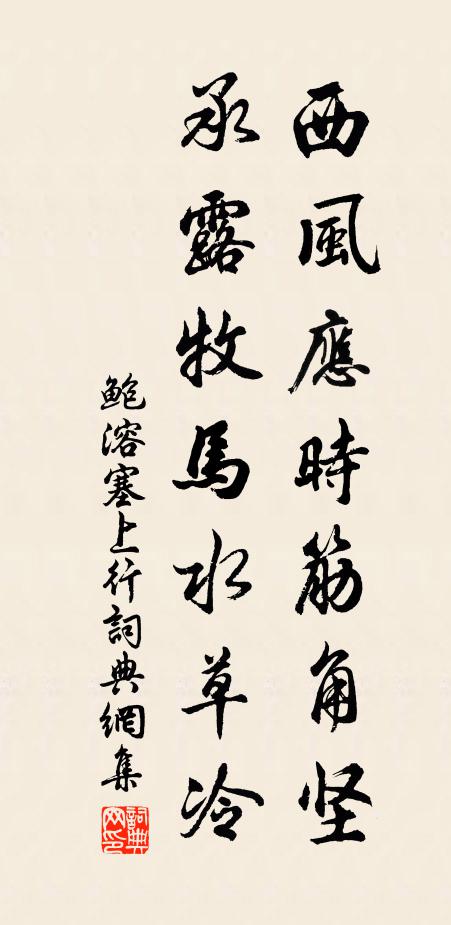 西風應時筋角坚
承露牧馬水草冷
鲍溶塞上行詞典網集
詞典网印